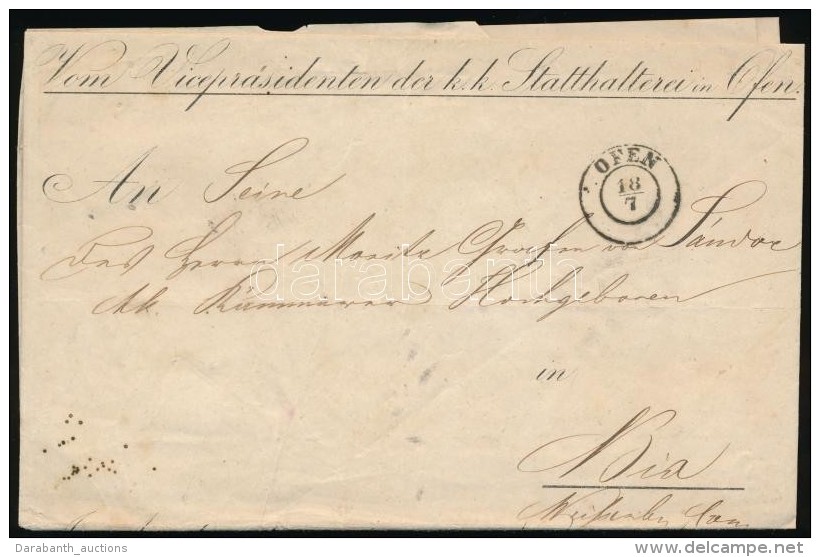 Vom Vicepräsidenten der k.k. Statthalterei in Ofen.
OFEN
18
7
An Seine
des Herrn Moritz Grafen von Sándor
kk. Kämmerer Hochgeboren
in
Bia
darabanth
© Darabanth_auctions
delcampe.net